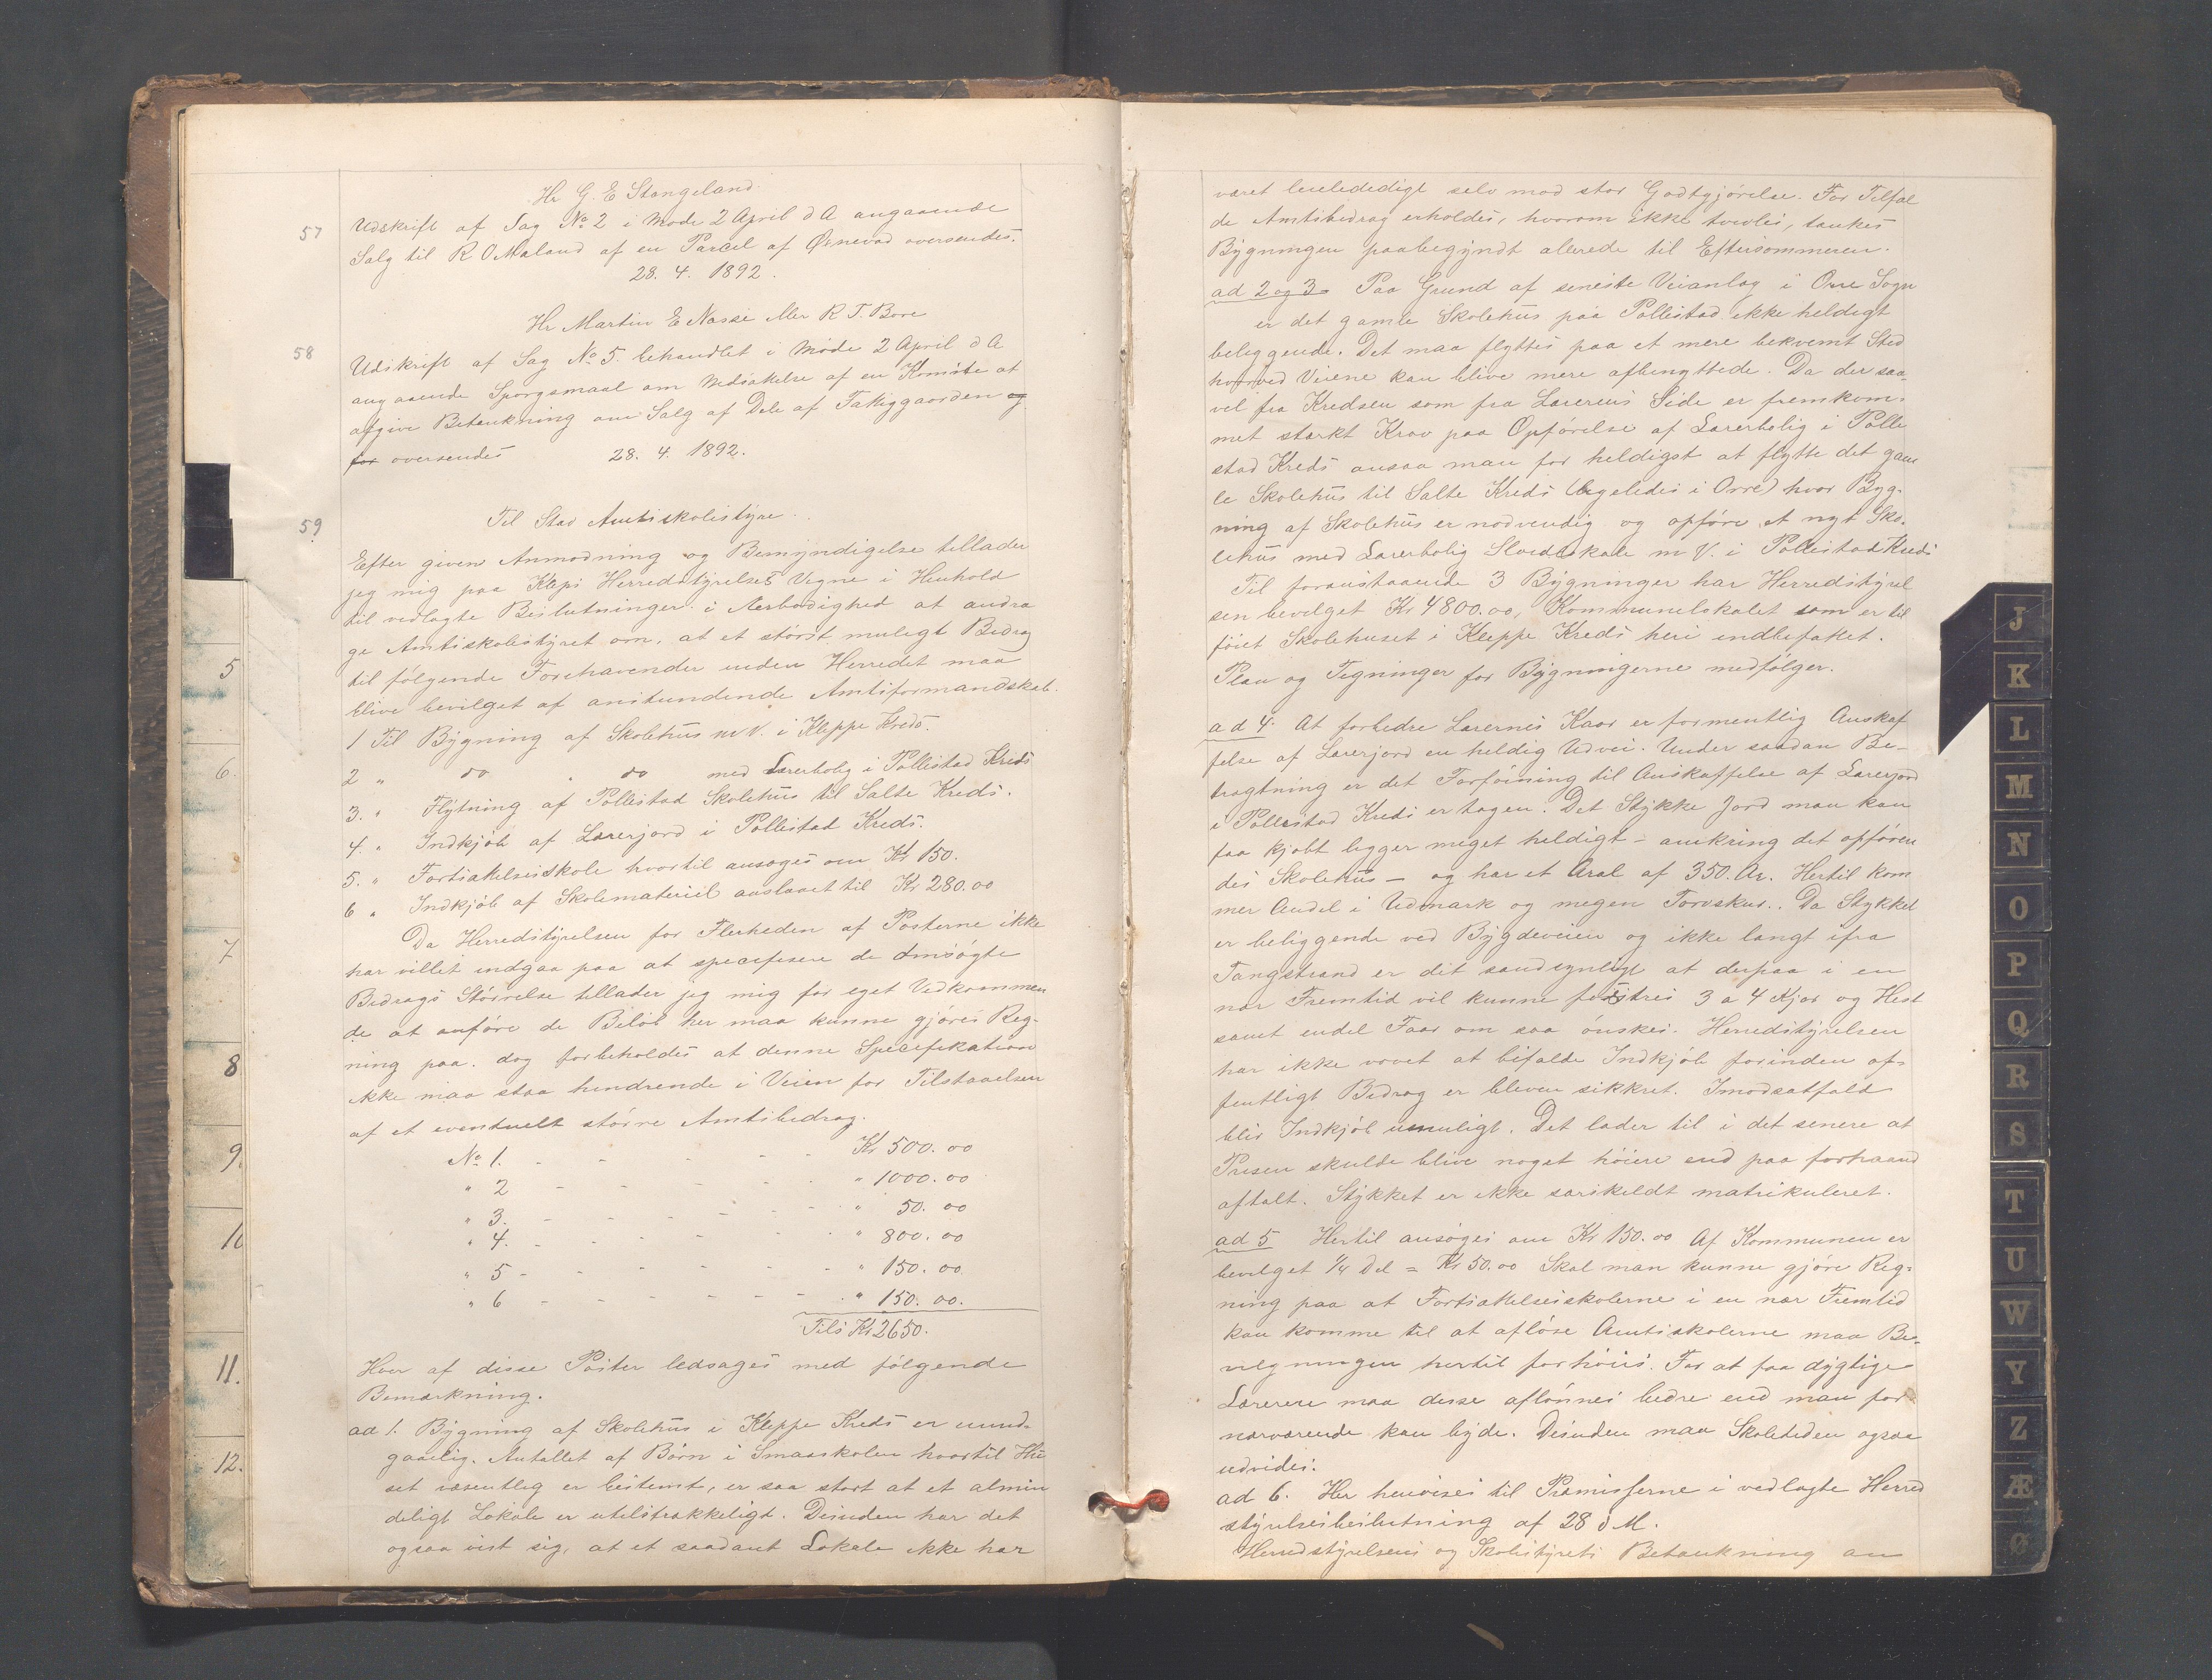 Hr G. E Stangeland.
57
Udskrift af Sag No 2 i Møde 2 April d A angaaende
Salg til R O Maland af en Parcel af Ørnevad oversendes.
28. 4. 1892.
Hr Martin E Næsse eller R T. Bore
58
Udskrift af Sag No 5. behandlet i Møde 2 April d A
angaaende Spørgsmaal om Nedsættelse af en Komite at
afgive Betænkning om Salg af Dele af Tatiggaarden og
for oversendes 28. 4. 1892.
59
Til Stav Amtsskolestyre.
Efter given Anmodning og Bemyndigelse tillader
jeg mig paa Kleps Herredstyrelses Vegne i Henhold
til vedlagte Beslutninger i Ærbødighed at andra
ge Amtsskolestyret om, at et størst muligt Bidrag
til følgende Forehavender inden Herredet maa
blive bevilget af anstundende Amtsformandskab.
1 Til Bygning af Skolehus m V. i Kleppe Kreds.
2 " do " do med Lærerbolig i Pollestad Kreds
3. " Flytning af Pollestad Skolehus til Salte Kreds.
4. " Indkjøb af Lærerjord i Pollestad Kreds.
5. " Fortsættelsesskole hvortil ansøges om Kr 150.
6 " Indkjøb af Skolemateriel anslaaet til Kr 280.00
Da Herredstyrelsen for Flerheden af Posterne ikke
har villet indgaa paa at specifisere de Ansøgte
Bidrags Størrelse tillader jeg mig for eget Vedkommen
de at anføre de Beløb her maa kunne gjøres Reg-
ning paa, dog forbeholdes at denne Specifikation
ikke maa staa hindrende i Veien for Tilstaaelsen
af et eventuelt større Amtsbidrag.
No 1. - - - - - Kr 500.00
" 2 - - - - - " 1000.00
" 3. - - - - - " 50.00
" 4. - - - - - " 800.00
" 5 - - - - - " 150.00
" 6 - - - - - " 150.00.
Tils Kr 2650.
Hver af disse Poster ledsages med følgende
Bemærkning.
ad 1. Bygning af Skolehus i Kleppe Kreds er uund-
gaaelig. Antallet af Børn i Smaaskolen hvortil Hu
set væsentlig er bestemt, er saa stort at et almin
deligt Lokale er utilstrækkeligt. Desuden har det
ogsaa vist sig, at et saadant Lokale ikke har
været leieledigt selv mod stor Godtgjørelse. For Tilfæl
de Amtsbidrag erholdes, hvorom ikke tvivles, tænkes
Bygningen paabegyndt allerede til Eftersommeren.
ad 2 og 3. Paa Grund af seneste Veianlæg i Orre Sogn
er det gamle Skolehus paa Pollestad ikke heldigt
beliggende. Det maa flyttes paa et mere bekvemt Sted
hvorved Veiene kan blive mere afbenyttede. Da der saa-
vel fra Kredsen som fra Lærerens Side er fremkom-
met stærkt Krav paa Opførelse af Lærerbolig i Polle
stad Kreds ansaa man for heldigst at flytte det gam
le Skolehus til Salte Kreds (ligeledes i Orre) hvor Byg-
ning af Skolehus er nødvendig og opføre et nyt Sko-
lehus med Lærerbolig Sløidskole m V. i Pollestad Kreds
Til foranstaaende 3 Bygninger har Herredstyrel
sen bevilget Kr 4800.00, Kommunelokalet som er til
føiet Skolehuset i Kleppe Kreds heri indbefattet.
Plan og Tegninger for Bygningerne medfølger.
ad 4. At forbedre Lærernes Kaar er formentlig Anskaf
felse af Lærerjord en heldig Udvei. Under saadan Be-
tragtning er det Forføining til Anskaffelse af Lærerjord
i Pollestad Kreds er tagen. Det Stykke Jord man kan
faa kjøbt ligger meget heldigt - omkring det opføren
des Skolehus - og har et Aral af 350. Ar. Hertil kom
mer Andel i Udmark og megen Torvskur. Da Stykket
er beliggende ved Bygdeveien og ikke langt ifra
Tangstrand er det sandsynligt at derpaa i en
nær Fremtid vil kunne fostres 3 a 4 Kjør og Hest
samt endel Faar om saa ønskes. Herredstyrelsen
har ikke vovet at bifalde Indkjøb forinden of-
fentligt Bidrag er bleven sikkret. Imodsatfald
blir Indkjøb umuligt. Det lader til i det senere at
Prisen skulde blive noget høiere end paa forhaand
aftalt. Stykket er ikke særskildt matrikuleret.
ad 5 Hertil ansøges om Kr 150.00 Af Kommunen er
bevilget 1/4 Del = Kr 50.00 Skal man kunne gjøre Reg-
ning paa at Fortsættelsesskolerne i en nær Fremtid
kan komme til at afløse Amtsskolerne maa Be-
vilgningen hertil forhøies. For at faa dygtige
Lærere maa disse aflønnes bedre end man for
nærværende kan byde. Desuden maa Skoletiden ogsaa
udvides.
ad 6. Her henvises til Præmisserne i vedlagte Herred
styrelsesbeslutning af 28 d M.
Herredstyrelsens og Skolestyrets Betænkning an
5
6.
7
8
9.
10
11.
12.
J
K
L
M
N
O
P
Q
R
S
T
U
W
Y
Z
Æ
Ø